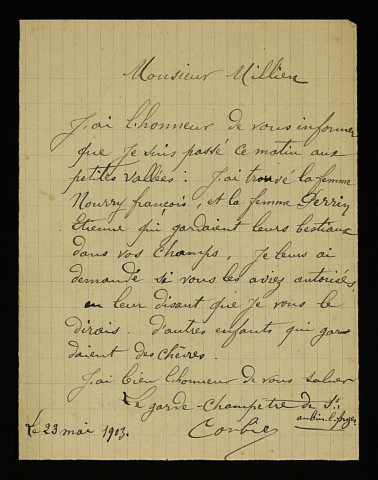 Monsieur Millien
J'ai l'honneur de vous informer
que je suis passé ce matin aux
petites vallées : J'ai trouvé la femme
Nourry françois, et la femme Perrin
Etienne qui gardaient leurs bestiaux
dans vos champs, Je leurs ai
demandé si vous les aviez autorisés,
en leur disant que je vous le
dirais. d'autres enfants qui gar
daient des chèvres.
J'ai bien l'honneur de vous saluer
Le garde-champêtre de St
aubin-l-forges
Le 23 mai 1903.